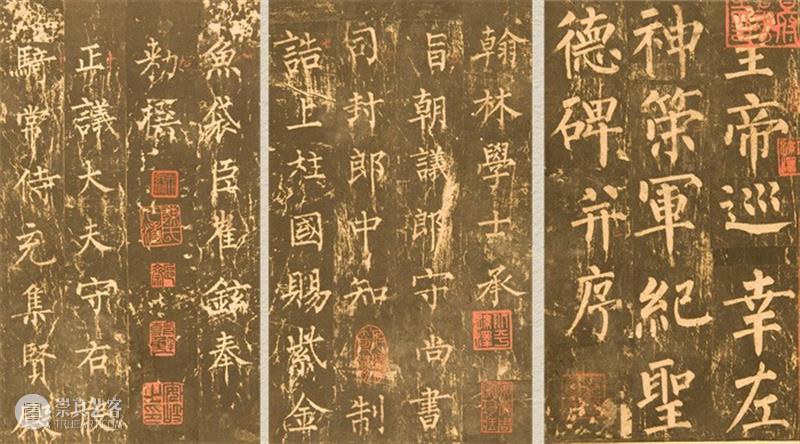 皇帝巡幸左
神策軍紀聖
德碑并序
翰林學士承
旨朝議郎守尚書
司封郎中知制
誥上柱國賜紫金
魚袋臣崔鉉奉
勑撰
正議大夫守右散
騎常侍充集賢殿
崇真艺客